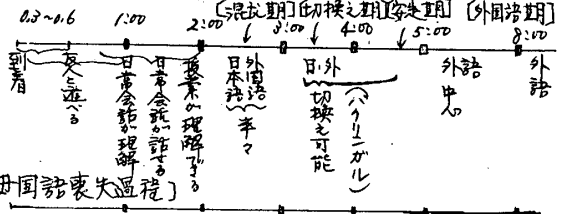 [混乱期] [切換え期] [安定期] [外国語期]
0.3~0.6 1:00 2:00 3:00 4:00 5:00 8:00
到着
友人と遊べる
日常会話が理解
日常会話が話せる
授業が理解できる
日本語 外国語 半々
日・外 切換え可能
(バイリンガル)
外語中心
外語
母国語喪失過程]